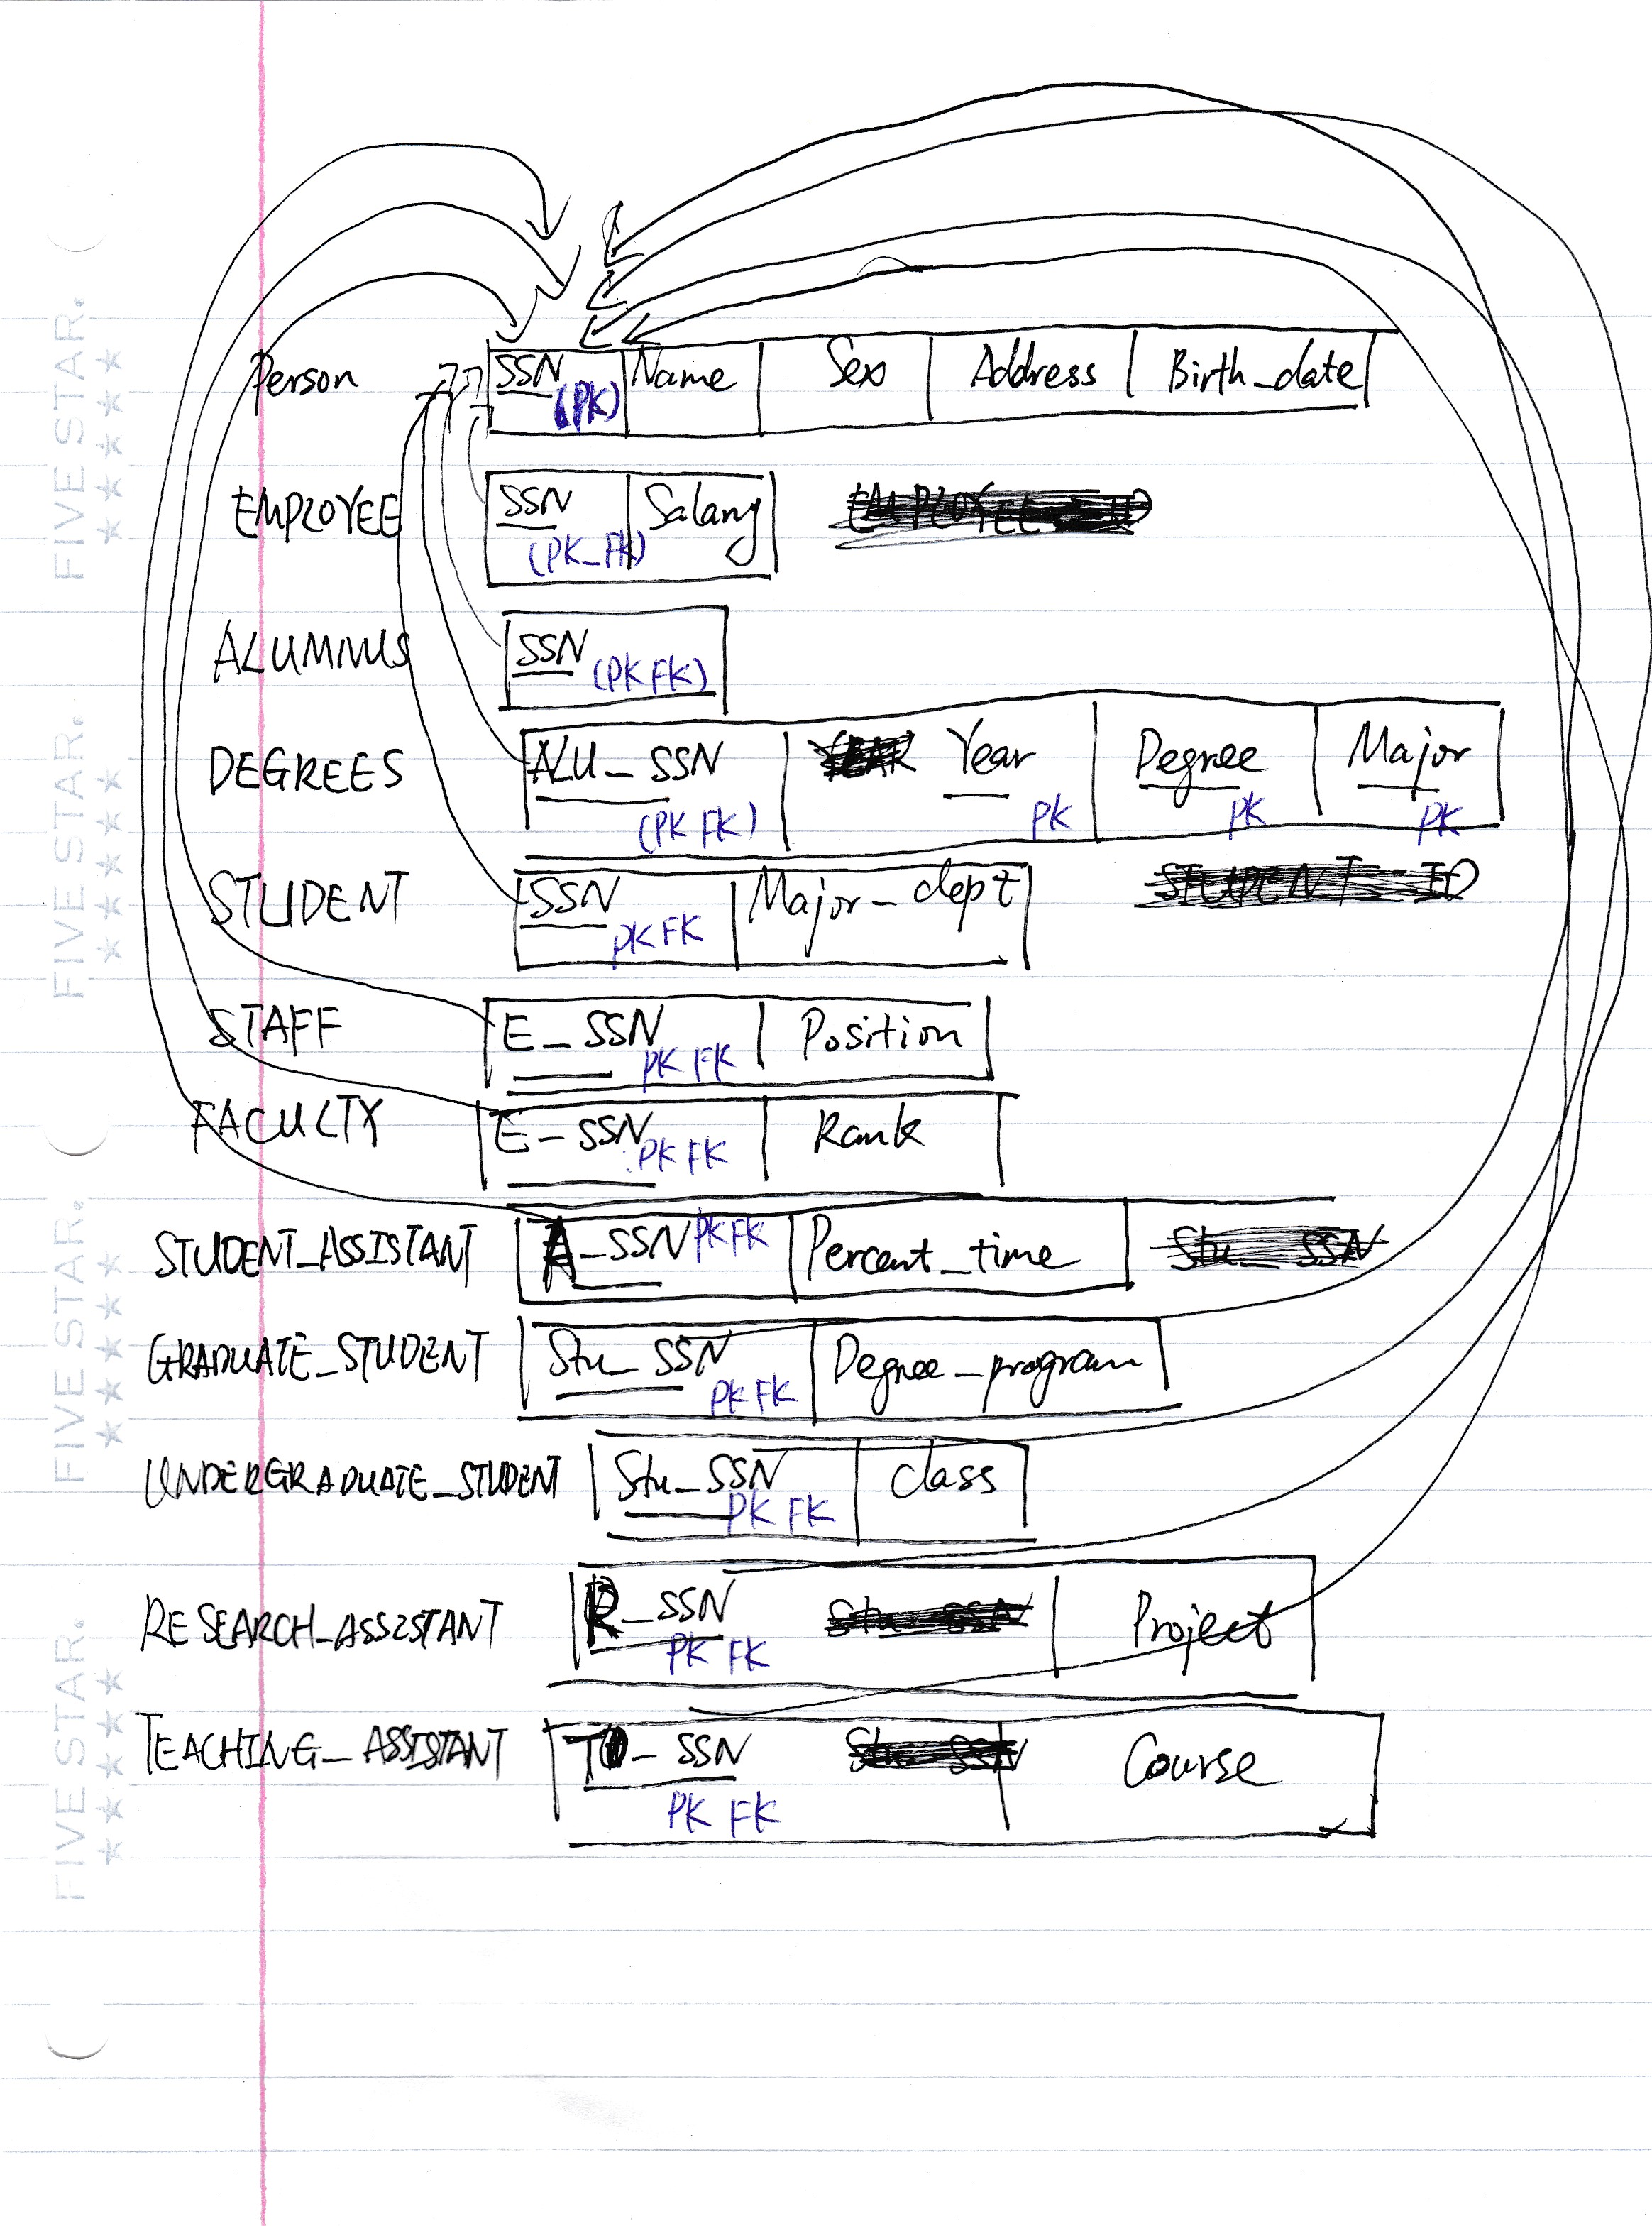 Person SSN (PK) Name Sex Address Birth_date
EMPLOYEE SSN (PK_FK) Salary
ALUMNUS SSN (PK FK)
DEGREES ALU_SSN (PK FK) Year PK Degree PK Major PK
STUDENT SSN PK FK Major_dept
STAFF E_SSN PK FK Position
FACULTY E_SSN PK FK Rank
STUDENT_ASSISTANT A_SSN PK FK Percent_time
GRADUATE_STUDENT Stu_SSN PK FK Degree_program
UNDERGRADUATE_STUDENT Stu_SSN PK FK class
RESEARCH_ASSISTANT R_SSN PK FK Project
TEACHING_ASSISTANT T_SSN PK FK Course
FIVE STAR.
FIVE STAR.
FIVE STAR.
FIVE STAR.